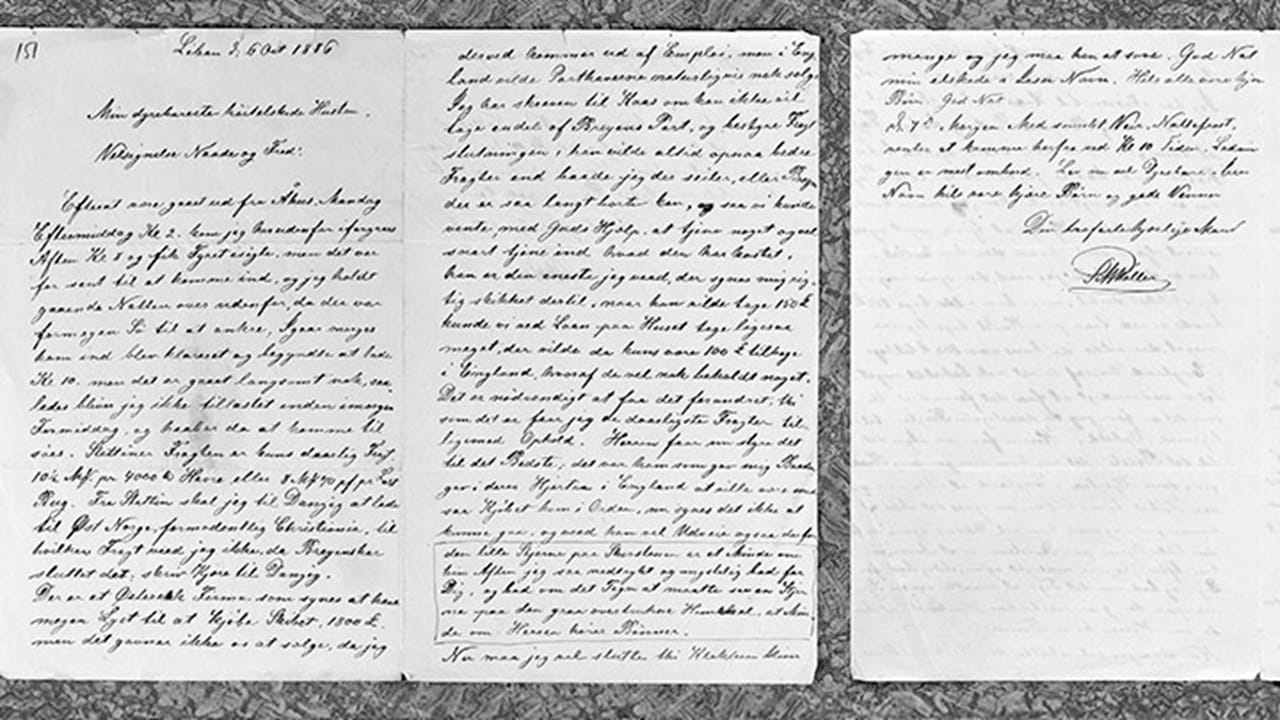 151
Libau d. 6 Oct 1886
Min dyrekjæreste høitelskede Hustru.
Velsignelse Naade og Fred!
Efterat være gaaet ud fra Åhus Mandag
Eftermiddag Kl 2. kom jeg her udenfor iforgaars
Aften Kl 8 og fik Fyret isigte, men det var
for sent til at komme ind, og jeg holdt
gaaende Natten over udenfor, da der var
formegen Sø til at ankre, Igaar morges
kom ind blev klareret og begyndte at lade
Kl 10. men det er gaaet langsomt nok, saa
ledes bliver jeg ikke tillastet inden imorgen
Formiddag, og haaber da at komme til
siøs. Stettiner Fragten er kuns daarlig
10½ Mk. pr 4000 Havre eller 8 Mk 70 pf pr Last
Rug. Fra Stettin skal jeg til Danzig at lade
til Øst Norge, formodentlig Christiania, til
hvilken Fragt veed jeg ikke, da Breyensker
sluttet det; skriv Kjære til Danzig.
Der er et Firma som synes at have
megen Lyst til at Kjøbe Skibet, 1800 £.
men det gavner ikke os at sælge, da jeg
derved kommer ud af Emploi, men i Eng
land vilde Parthaverne naturligvis nok sælge
Jeg har skreven til Haas om han ikke vil
tage endel af Breyens Part, og bestyre Fragt
slutningen; han vilde altid opnaa bedre
Fragter end baade jeg der seiler, eller
der er saa langt borte kan, og saa vi kunde
vente med Guds Hjælp, at tjene noget og vel
snart tjene ind hvad den har kostet.
han er den eneste jeg veed, der synes mig rig-
tig skikket dertil, naar han vilde tage 150 £
kunde vi ved Laan paa Huset tage ligesaa
meget, der vilde da kuns være 100 £ tilbage
i England, hvoraf de vel nok beholdt noget.
Det er nødvendigt at faa det forandret, thi
som det er faaer jeg de daarligste Fragter til-
ligemed Ophold. Herren faar nu styre det
til det Bedste, det var ham som gav mig
gav i deres Hjerter i England at ville være med
saa Kjøbet kom i Orden, nu synes det ikke at
kunne gaa, og vesed han vel Udveie ogsaa derfor
den lille Stjerne paa er et Minde om
hin Aften jeg saa nedtrykt og ængstelig bad for
Dig, og bad om det Tegn at maatte see en Stjer
ne paa den graa overtrukne Himmel, at Min
de om Herren hører Bønner.
Nu maa jeg vel slutte thi Klokken bliver
mange og jeg maa hen at sove. God Nat
min elskede i Jesu Navn. Hils alle vore kjære
Børn. God Nat
D. 7de. morgen. Med smukt Veir, Nattefrost,
venter at komme herfra ved Kl 10 Tiden, Ladnin
gen er mest ombord. Lev nu vel Dyrebare i Jesu
Navn hils vore kjære Børn og gode Venner
Din trofaste hjertelige Mand